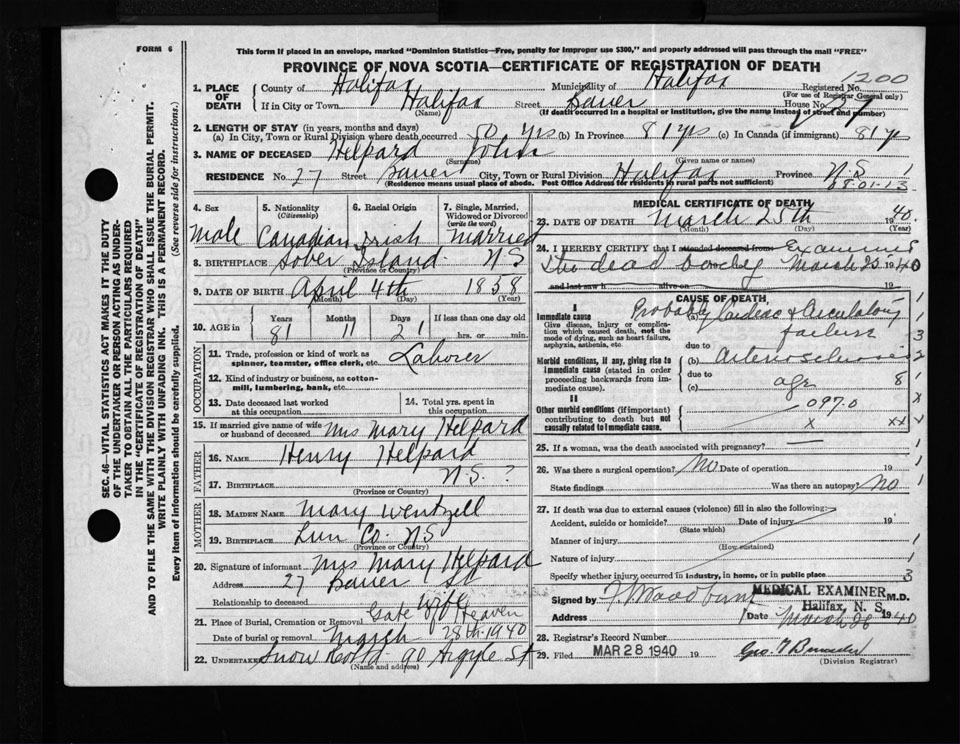 FORM 6
This form if placed in an envelope, marked "Dominion Statistics—Free, penalty for improper use $300," and properly addressed will pass through the mail "FREE"
PROVINCE OF NOVA SCOTIA—CERTIFICATE OF REGISTRATION OF DEATH
1. PLACE OF DEATH
County of Halifax Municipality of Halifax Registered No. 1200
(For use of Registrar General only)
If in City or Town Halifax Street Bauer House No. 27
(Name) (If death occurred in a hospital or institution, give the name instead of street and number)
2. LENGTH OF STAY (in years, months and days)
(a) In City, Town or Rural Division where death occurred 50 yrs (b) In Province 81 yrs (c) In Canada (if immigrant) 81 yrs
3. NAME OF DECEASED Helpard John
(Surname) (Given name or names)
RESIDENCE No. 27 Street Bauer City, Town or Rural Division Halifax Province N S
(Residence means usual place of abode. Post Office Address for residents in rural parts not sufficient) 08-01-13
4. Sex Male
5. Nationality (Citizenship) Canadian
6. Racial Origin Irish
7. Single, Married, Widowed or Divorced (write the word) Married
8. BIRTHPLACE Sober Island N S
(Province or Country)
9. DATE OF BIRTH April 4th 1858
(Month) (Day) (Year)
10. AGE in Years 81 Months 11 Days 21 If less than one day old hrs. or min.
OCCUPATION
11. Trade, profession or kind of work as spinner, teamster, office clerk, etc. Laborer
12. Kind of industry or business, as cotton-mill, lumbering, bank, etc.
13. Date deceased last worked at this occupation
14. Total yrs. spent in this occupation
15. If married give name of wife or husband of deceased Mrs Mary Helpard
FATHER
16. Name Henry Helpard
17. Birthplace N.S. ?
(Province or Country)
MOTHER
18. Maiden Name Mary Wentzell
19. Birthplace Lun Co. N S
(Province or Country)
20. Signature of informant Mrs Mary Helpard
Address 27 Bauer St
Relationship to deceased Wife
21. Place of Burial, Cremation or Removal Gate of Heaven
Date of burial or removal March 28th 1940
22. Undertaker Snow Co Ltd 90 Argyle St
(Name and address)
MEDICAL CERTIFICATE OF DEATH
23. DATE OF DEATH March 25th 1940.
(Month) (Day) (Year)
24. I HEREBY CERTIFY that I attended deceased from Examined
the dead body March 25 1940
and last saw h alive on 19
CAUSE OF DEATH
I
Immediate cause
Give disease, injury or complication which caused death, not the mode of dying, such as heart failure, asphyxia, asthenia, etc.
(a) Probably Cardiac & Circulatory failure
due to
Morbid conditions, if any, giving rise to immediate cause (stated in order proceeding backwards from immediate cause).
(b) Arteriosclerosis
due to
(c) age
II
Other morbid conditions (if important) contributing to death but not causally related to immediate cause.
097.0
25. If a woman, was the death associated with pregnancy?
26. Was there a surgical operation? No Date of operation 19
State findings Was there an autopsy? No
27. If death was due to external causes (violence) fill in also the following:
Accident, suicide or homicide? Date of injury 19
(State which)
Manner of injury
(How sustained)
Nature of injury
Specify whether injury occurred in industry, in home, or in public place
Signed by M.D.
MEDICAL EXAMINER
Halifax, N. S.
Address Date March 28 1940
28. Registrar's Record Number
29. Filed MAR 28 1940
(Division Registrar)
SEC. 46—VITAL STATISTICS ACT MAKES IT THE DUTY
OF THE UNDERTAKER OR PERSON ACTING AS UNDER-
TAKER TO OBTAIN ALL THE PARTICULARS REQUIRED
IN THE "CERTIFICATE OF REGISTRATION OF DEATH"
AND TO FILE THE SAME WITH THE DIVISION REGISTRAR WHO SHALL ISSUE THE BURIAL PERMIT.
WRITE PLAINLY WITH UNFADING INK. THIS IS A PERMANENT RECORD.
Every item of information should be carefully supplied. (See reverse side for instructions.)